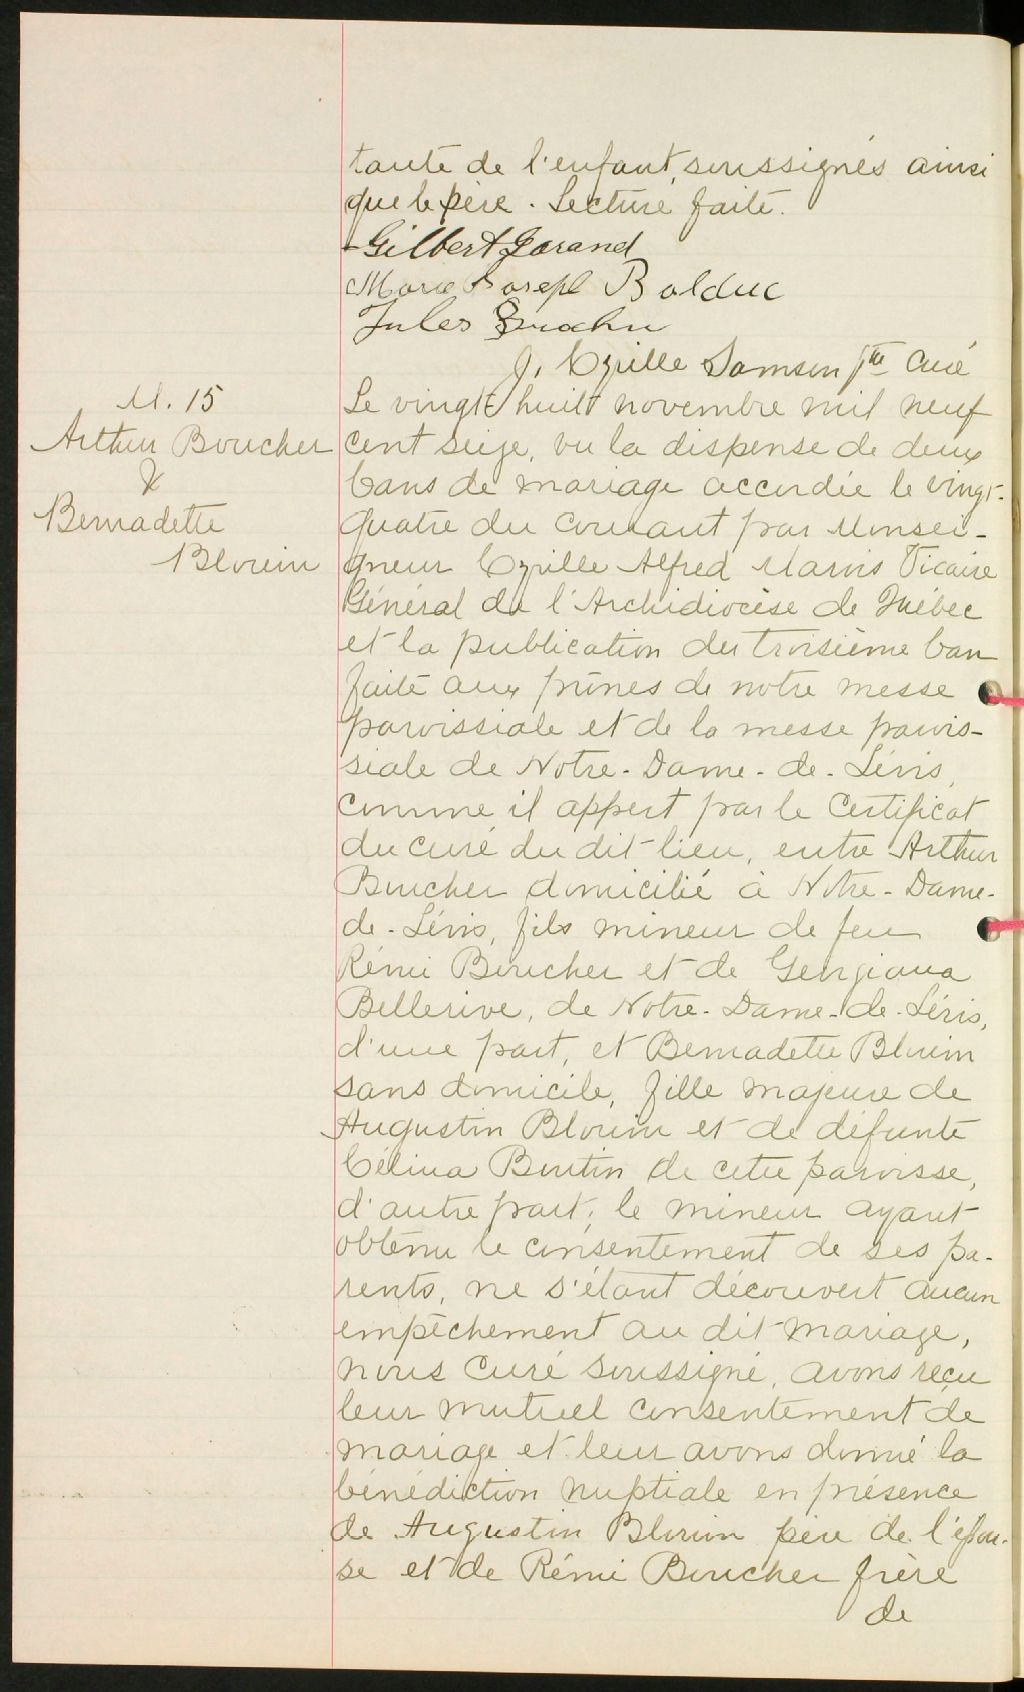 tante de l'enfant, soussignés ainsi
que le père. Lecture faite.
Gilbert Garand
Marie Joseph Bolduc
Jules Brochu
J. Cyrille Samson Ptre Curé
M. 15
Arthur Boucher
&
Bernadette
Blouin
Le vingt huit novembre mil neuf
cent seize, vu la dispense de deux
bans de mariage accordée le vingt-
quatre du courant par Monsei-
gneur Cyrille Alfred Marois Vicaire
Général de l'Archidiocèse de Québec
et la publication du troisième ban
faite aux prônes de notre messe
paroissiale et de la messe parois-
siale de Notre-Dame-de-Lévis,
comme il appert par le certificat
du curé du dit lieu, entre Arthur
Boucher domicilié à Notre-Dame-
de-Lévis, fils mineur de feu
Rémi Boucher et de Georgiana
Bellerive, de Notre-Dame-de-Lévis,
d'une part, et Bernadette Blouin
sans domicile, fille majeure de
Augustin Blouin et de défunte
Célina Boutin de cette paroisse,
d'autre part; le mineur ayant
obtenu le consentement de ses pa-
rents, ne s'étant découvert aucun
empêchement au dit mariage,
nous curé soussigné, avons reçu
leur mutuel consentement de
mariage et leur avons donné la
bénédiction nuptiale en présence
de Augustin Blouin père de l'épou-
se et de Rémi Boucher frère
de